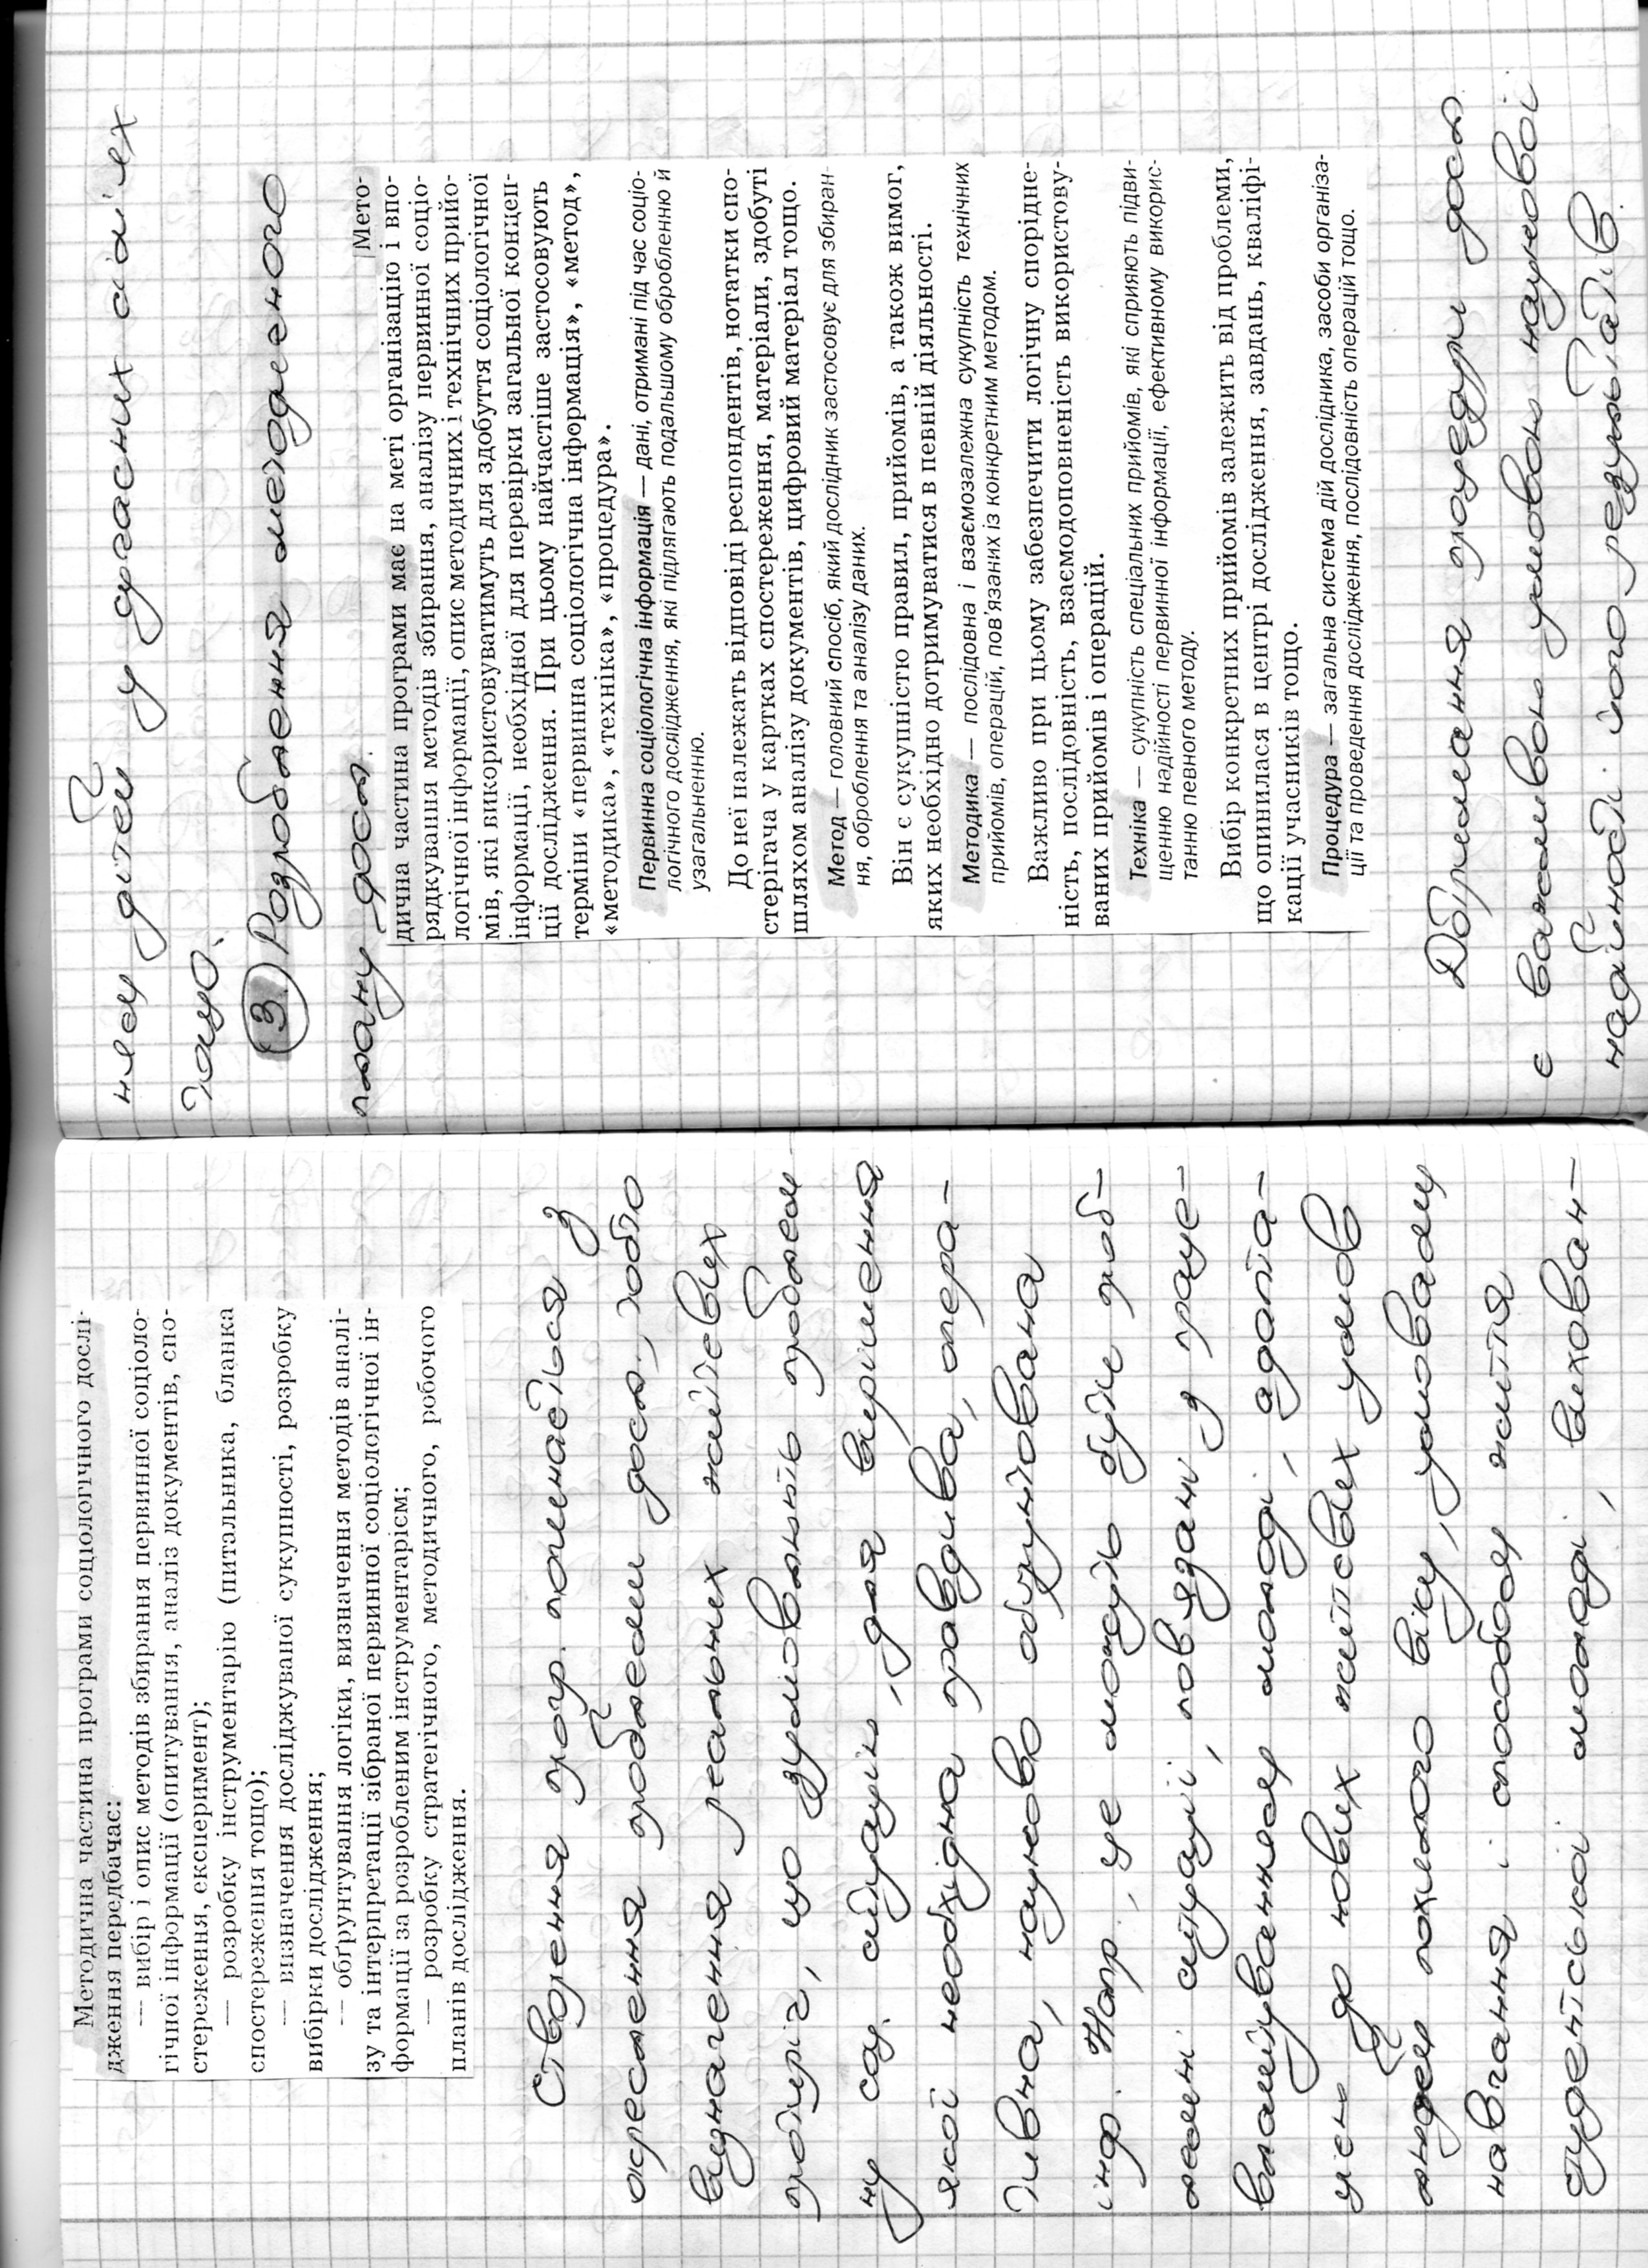 Методична частина програми соціологічного дослі-
дження передбачає:
— вибір і опис методів збирання первинної соціоло-
гічної інформації (опитування, аналіз документів, спо-
стереження, експеримент);
— розробку інструментарію (питальника, бланка
спостереження тощо);
— визначення досліджуваної сукупності, розробку
вибірки дослідження;
— обґрунтування логіки, визначення методів аналі-
зу та інтерпретації зібраної первинної соціологічної ін-
формації за розробленим інструментарієм;
— розробку стратегічного, методичного, робочого
планів дослідження.
Створення прогр. починається з
окреслення проблеми досл., тобто
визначення реальних життєвих
протиріч, що зумовлюють проблем-
ну соц. ситуацію, для вирішення
якої необхідна правдива, опера-
тивна, науково обґрунтована
інф. Напр., це можуть бути проб-
лемні ситуації, пов'язані з праце-
влаштуванням молоді, адапта-
цією до нових життєвих умов
людей похилого віку, умовами
навчання і способом життя
студентської молоді, вихован-
ням дітей у сучасних сім'ях
тощо.
3. Розроблення методичного
плану досл.
Мето-
дична частина програми має на меті організацію і впо-
рядкування методів збирання, аналізу первинної соціо-
логічної інформації, опис методичних і технічних прийо-
мів, які використовуватимуть для здобуття соціологічної
інформації, необхідної для перевірки загальної концеп-
ції дослідження. При цьому найчастіше застосовують
терміни «первинна соціологічна інформація», «метод»,
«методика», «техніка», «процедура».
Первинна соціологічна інформація — дані, отримані під час соціо-
логічного дослідження, які підлягають подальшому обробленню й
узагальненню.
До неї належать відповіді респондентів, нотатки спо-
стерігача у картках спостереження, матеріали, здобуті
шляхом аналізу документів, цифровий матеріал тощо.
Метод — головний спосіб, який дослідник застосовує для збиран-
ня, оброблення та аналізу даних.
Він є сукупністю правил, прийомів, а також вимог,
яких необхідно дотримуватися в певній діяльності.
Методика — послідовна і взаємозалежна сукупність технічних
прийомів, операцій, пов'язаних із конкретним методом.
Важливо при цьому забезпечити логічну спорідне-
ність, послідовність, взаємодоповненість використову-
ваних прийомів і операцій.
Техніка — сукупність спеціальних прийомів, які сприяють підви-
щенню надійності первинної інформації, ефективному викорис-
танню певного методу.
Вибір конкретних прийомів залежить від проблеми,
що опинилася в центрі дослідження, завдань, кваліфі-
кації учасників тощо.
Процедура — загальна система дій дослідника, засоби організа-
ції та проведення дослідження, послідовність операцій тощо.
Дотримання процедури досл.
є важливою умовою наукової
надійності його результатів.